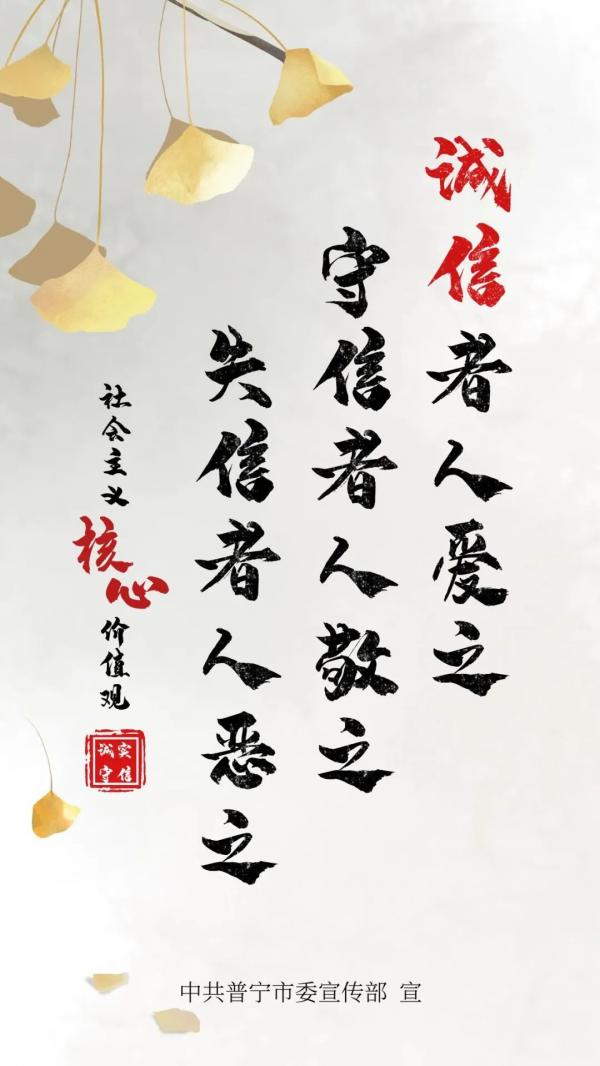 诚信者人爱之
守信者人敬之
失信者人恶之
社会主义核心价值观
诚实守信
中共普宁市委宣传部 宣